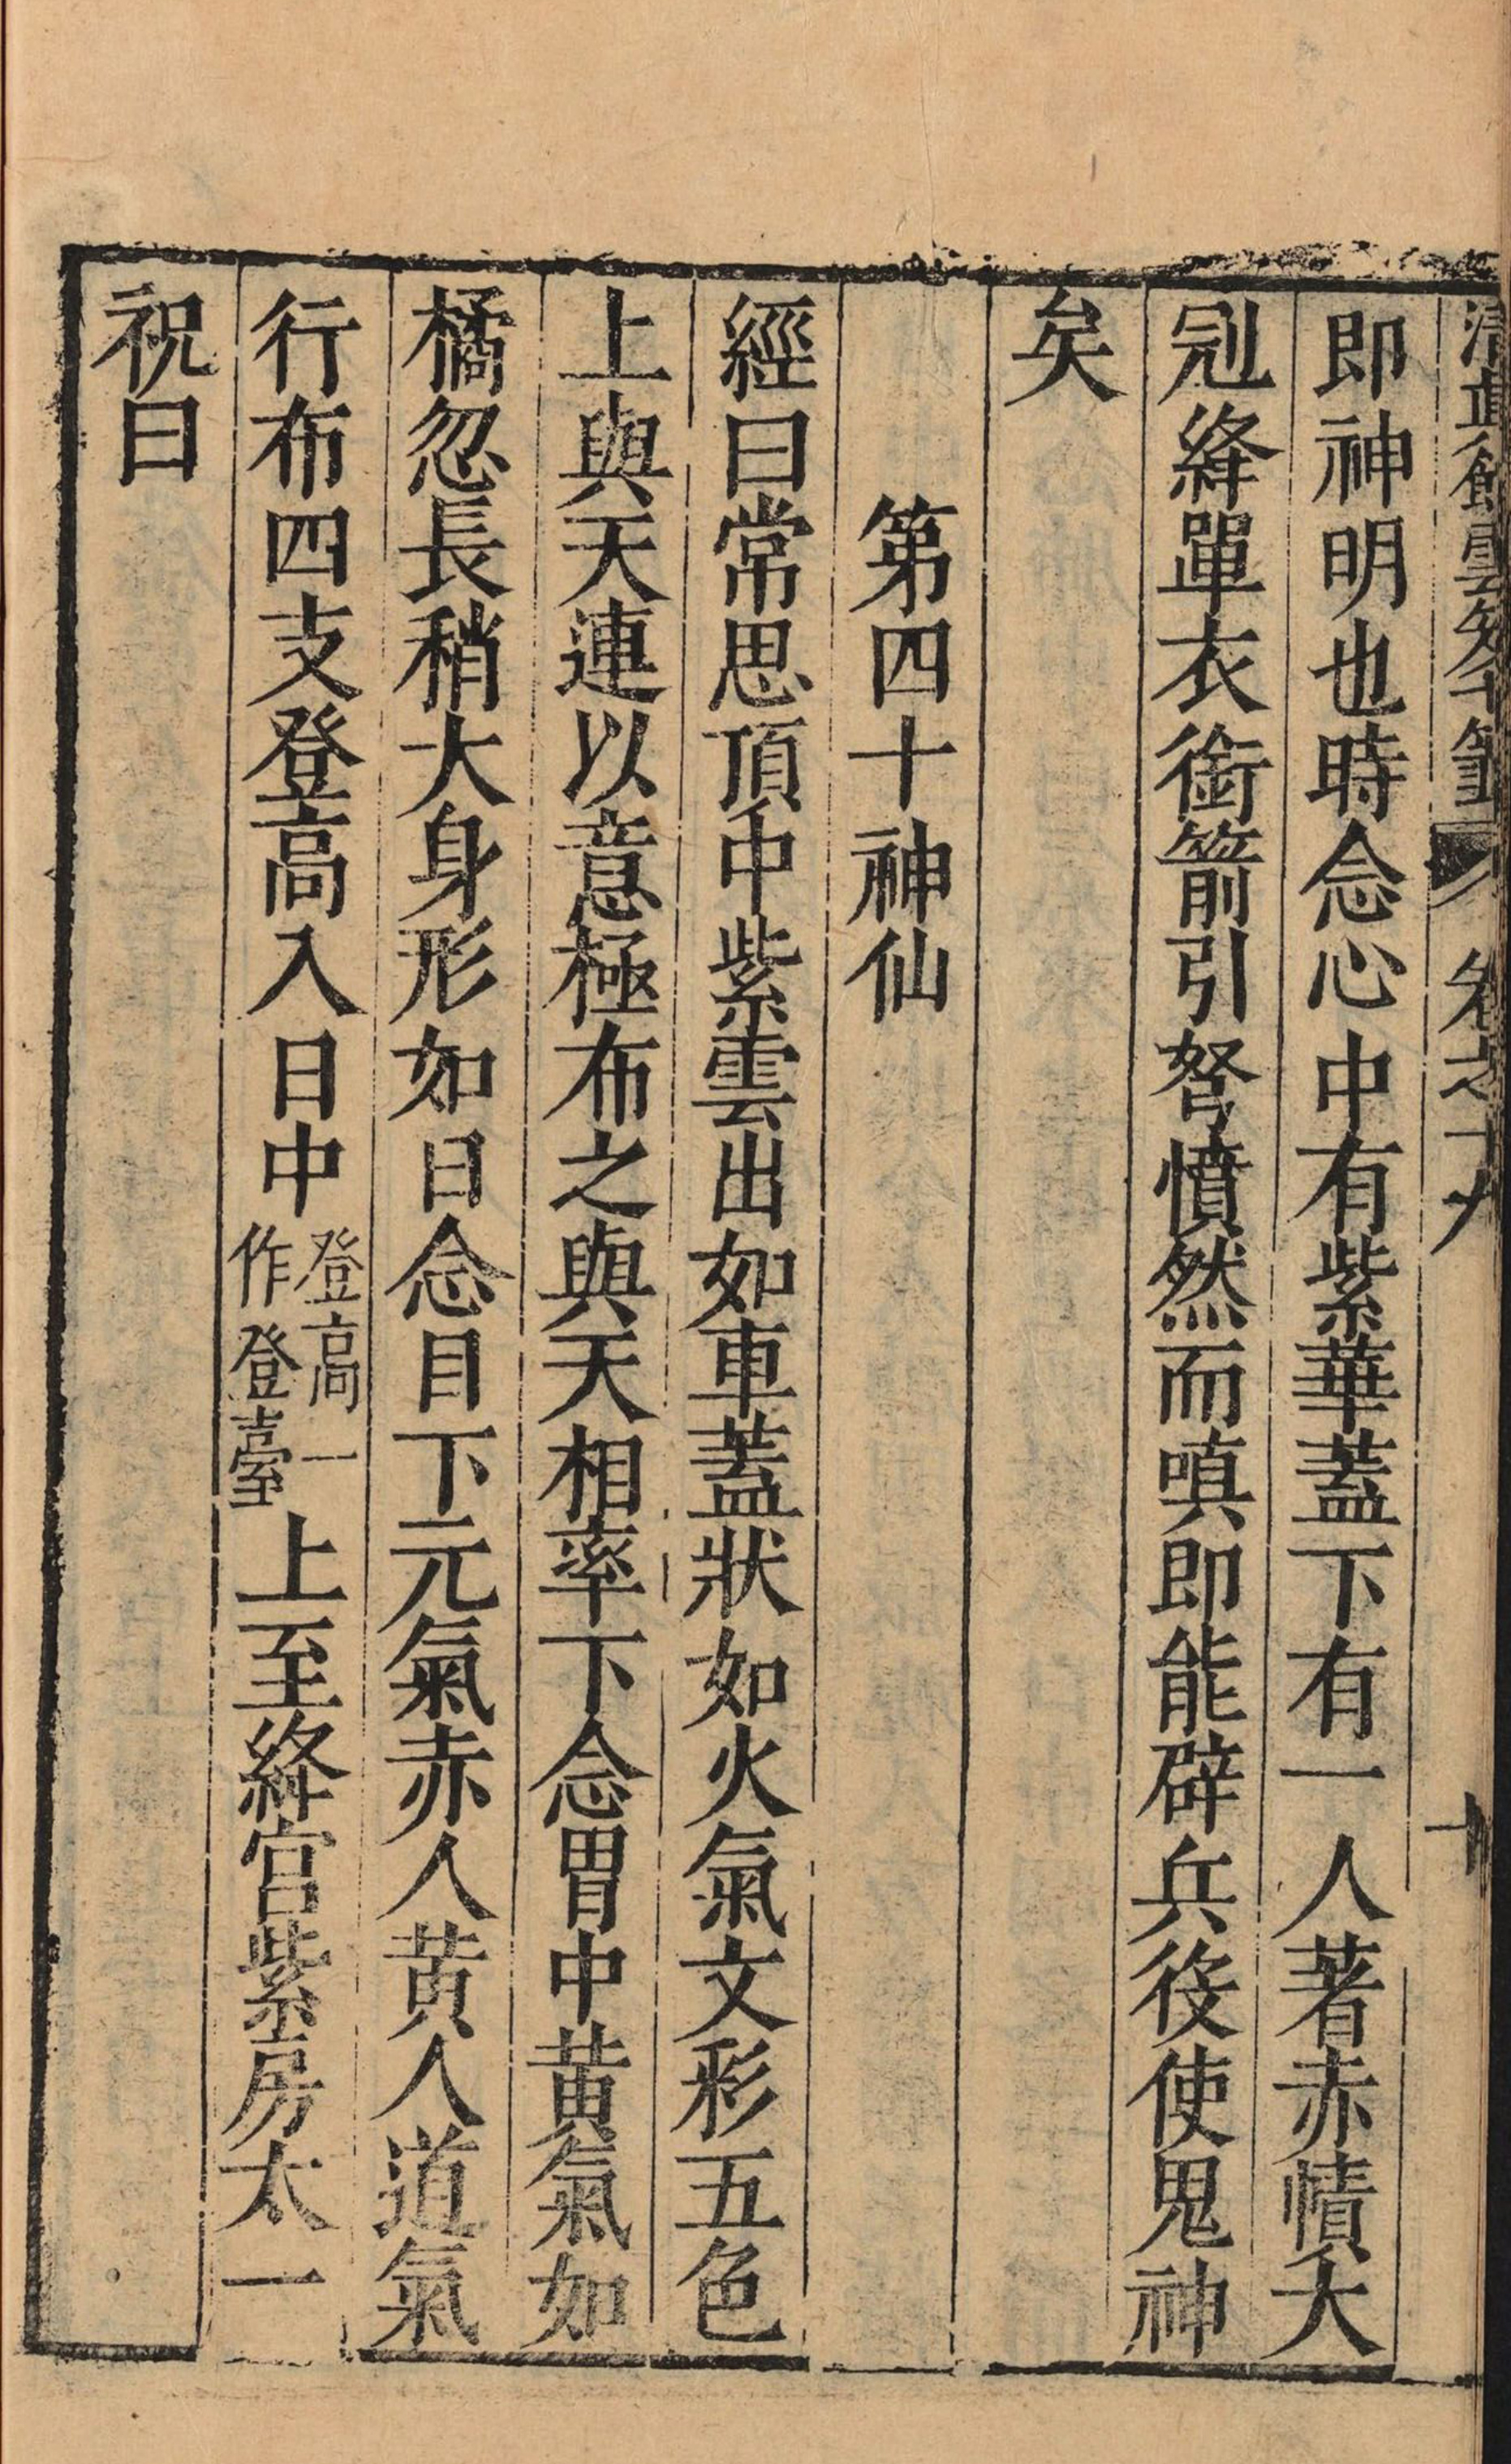 清眞館雲笈七籤 卷之十八 十
即神明也時念心中有紫華蓋下有一人著赤幘大
冠絳單衣銜箭引弩憤然而嗔即能辟兵役使鬼神
矣
第四十神仙
經曰常思頂中紫雲出如車蓋狀如火氣文彩五色
上與天連以意極布之與天相率下念胃中黃氣如
橘忽長稍大身形如日念目下元氣赤人黄人道氣
行布四支登高入日中登高一作登臺上至絳宮紫房太一
祝曰